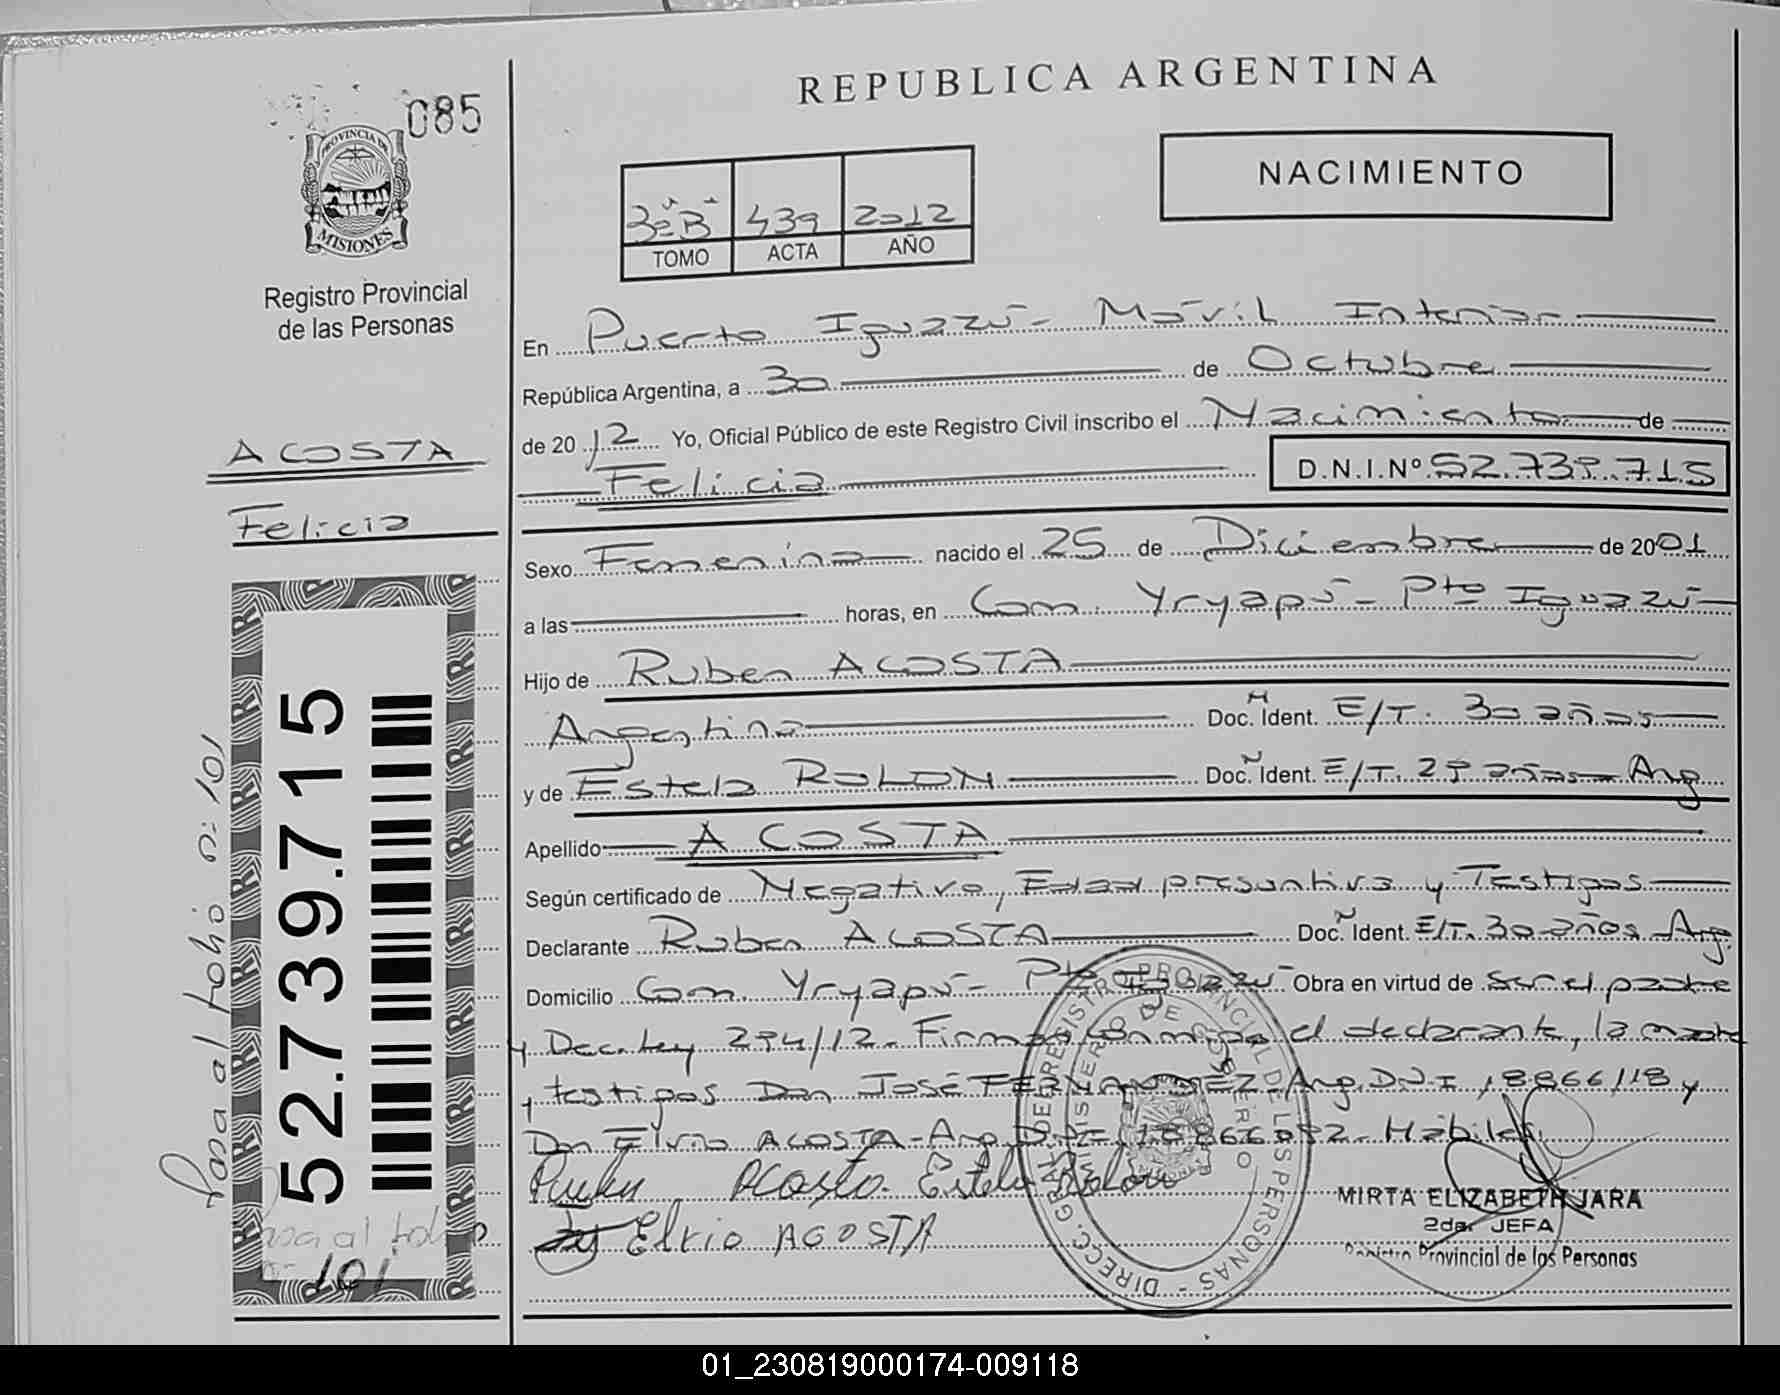 085
PROVINCIA DE
MISIONES
Registro Provincial
de las Personas
ACOSTA
Felicia
52.739.715
Pasa al folio n: 101
Pasa al folio
101
REPUBLICA ARGENTINA
NACIMIENTO
3º B 439 2012
TOMO ACTA AÑO
En Puerto Iguazú - Móvil Interior
República Argentina, a 30 de Octubre
de 2012 Yo, Oficial Público de este Registro Civil inscribo el Nacimiento de
Felicia D.N.I.Nº 52.739.715
Sexo Femenino nacido el 25 de Diciembre de 2001
a las horas, en Com. Yryapú - Pto Iguazú
Hijo de Ruben ACOSTA
Argentina Doc. Ident. E/T. 30 años
y de Estela ROLON Doc. Ident. E/T. 29 años Arg
Apellido ACOSTA
Según certificado de Negativo, Edad presuntiva y Testigos
Declarante Ruben ACOSTA Doc. Ident. E/T. 30 años Arg.
Domicilio Com. Yryapú - Pto Iguazú Obra en virtud de ser el padre
y Dec. Ley 294/12. Firman conmigo el declarante, la madre
y testigos Don José FERNANDEZ, Arg. D.N.I 18866118 y
Don Elvio ACOSTA - Arg. D.N.I. - Hábiles.
Ruben Acosta. Estela Rolon
Elvio ACOSTA
MIRTA ELIZABETH JARA
2da. JEFA
Registro Provincial de las Personas
DIRECC. GRAL DEL REGISTRO PROVINCIAL DE LAS PERSONAS
MINISTERIO DE GOBIERNO
01_230819000174-009118